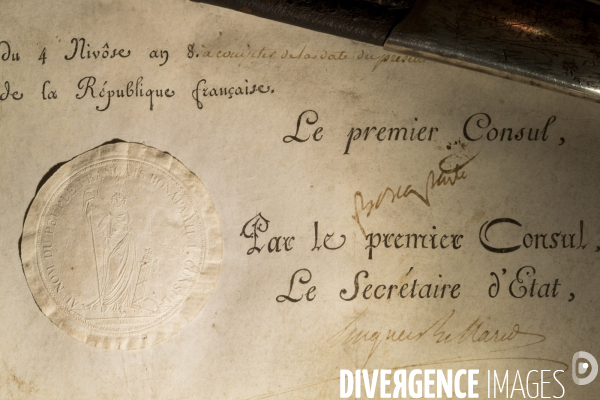 du 4 Nivôse an 8. à compter de la date du présent
de la République française.
Le premier Consul,
Bonaparte
Par le premier Consul,
Le Secrétaire d'Etat,
Hugues B. Maret
AU NOM DU PEUPLE FRANÇAIS
DIVERGENCE IMAGES